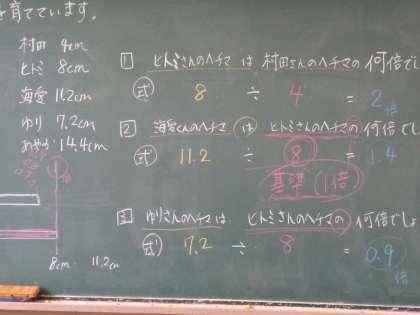 を育てています。
村田 4cm
ヒトミ 8cm
海愛 11.2cm
ゆり 7.2cm
あやか 14.4cm
1 ヒトミさんのヘチマ は 村田さんのヘチマの 何倍でし
(式) 8 ÷ 4 = 2倍
2 海愛さんのヘチマ は ヒトミさんのヘチマの 何倍でし
(式) 11.2 ÷ 8 = 1.4
基準 (1倍)
3 ゆりさんのヘチマは ヒトミさんのヘチマの 何倍でしょ
(式) 7.2 ÷ 8 = 0.9倍
8cm 11.2cm